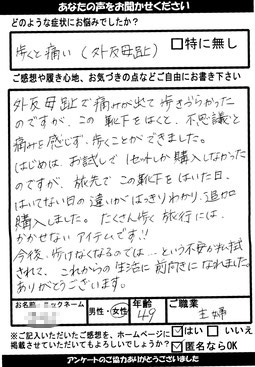 あなたの声をお聞かせください
どのような症状にお悩みでしたか?
歩くと痛い(外反母趾) □特に無し
ご感想や履き心地、お気づきの点などご自由にお書き下さい
外反母趾で痛みが出て歩きづらかった
のですが、この靴下をはくと、不思議と
痛みを感じず、歩くことができました。
はじめは、お試しで1セットしか購入しなかった
のですが、旅先でこの靴下をはいた日、
はいてない日の違いがはっきりわかり、追加で
購入しました。たくさん歩く旅行には、
かかせないアイテムです!!
今後、歩けなくなるのでは…という不安が払拭
されて、これからの生活に前向きになれました。
ありがとうございます。
お名前・ニックネーム
男性・女性
年齢
49
ご職業
主婦
※ご記入いただいたご感想を、ホームページに
掲載させていただいてもよろしいでしょうか?
☑はい □いいえ
☑匿名ならOK
アンケートのご協力ありがとうございました